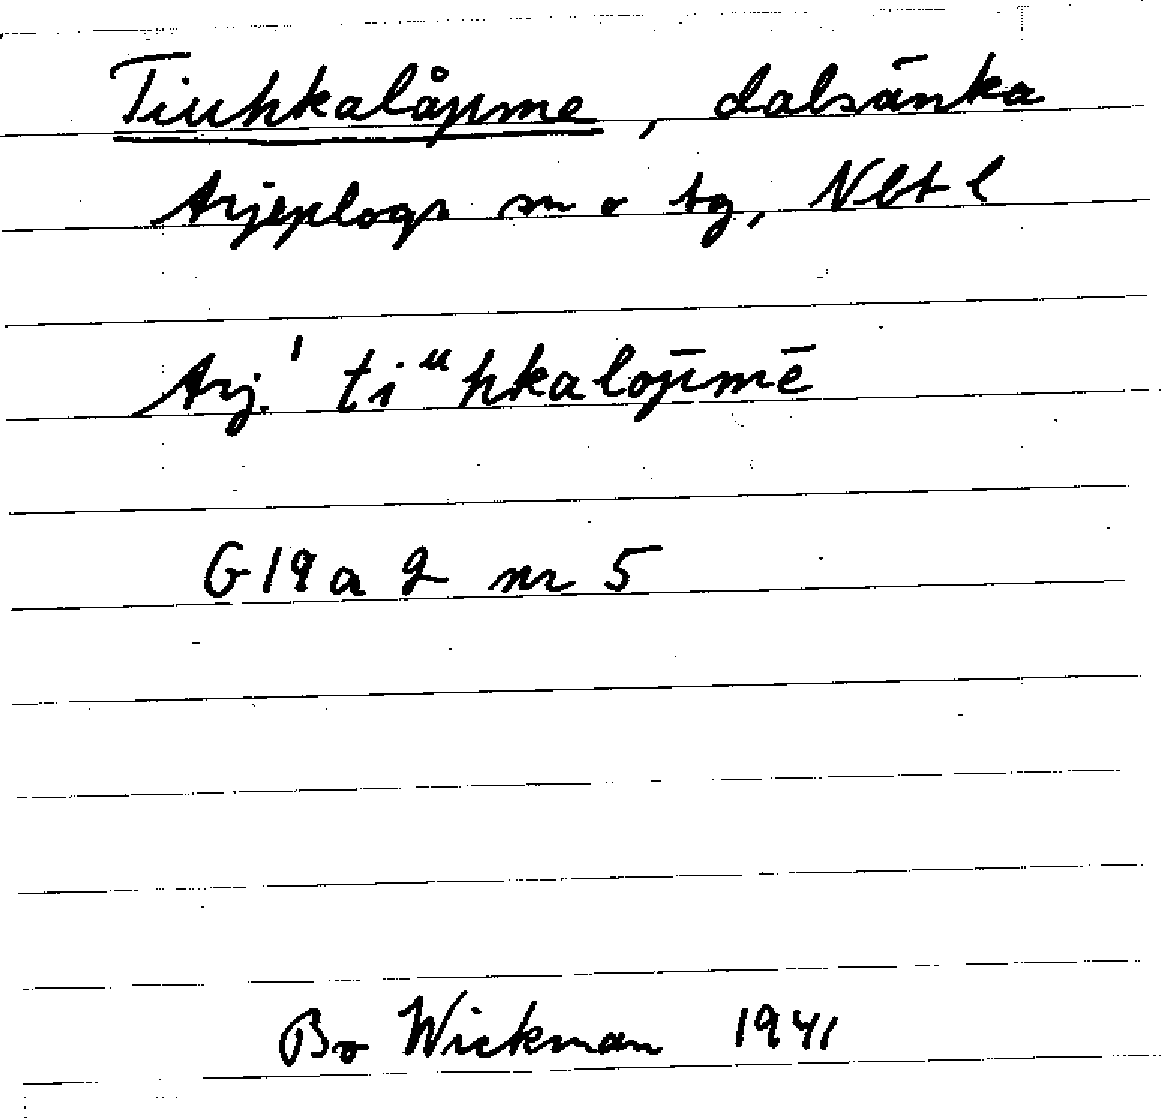 Tiuhkalåpme, dalsänka
Arjeplogs sn o tg, Nbt l
Arj. ' tiᵘhkalo͔p̄mē
G 19 a 2 nr 5
Bo Wickman 1941